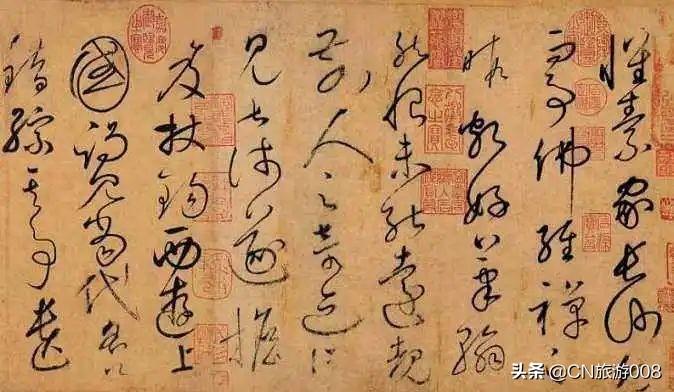 懷素家長沙幼
而事佛經禪之
暇頗好筆翰
然恨未能遠覩
前人之奇迹所
見甚淺遂擔
笈杖錫西遊上
國謁見當代名公
錯綜其事遺
头条 @CN旅游008